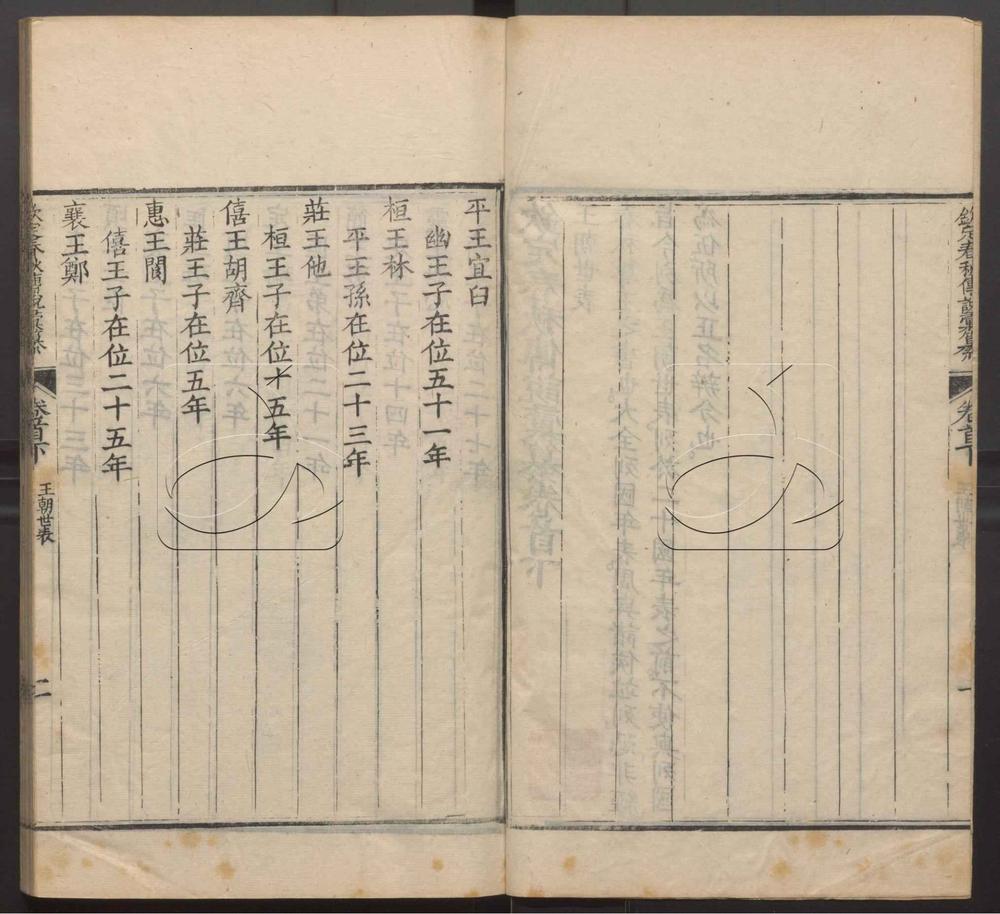 欽定春秋傳說彙纂
卷首下
一
平王宜臼
幽王子在位五十一年
桓王林
平王孫在位二十三年
莊王他
桓王子在位十五年
僖王胡齊
莊王子在位五年
惠王閬
僖王子在位二十五年
襄王鄭
欽定春秋傳說彙纂
卷首下
王朝世表
二